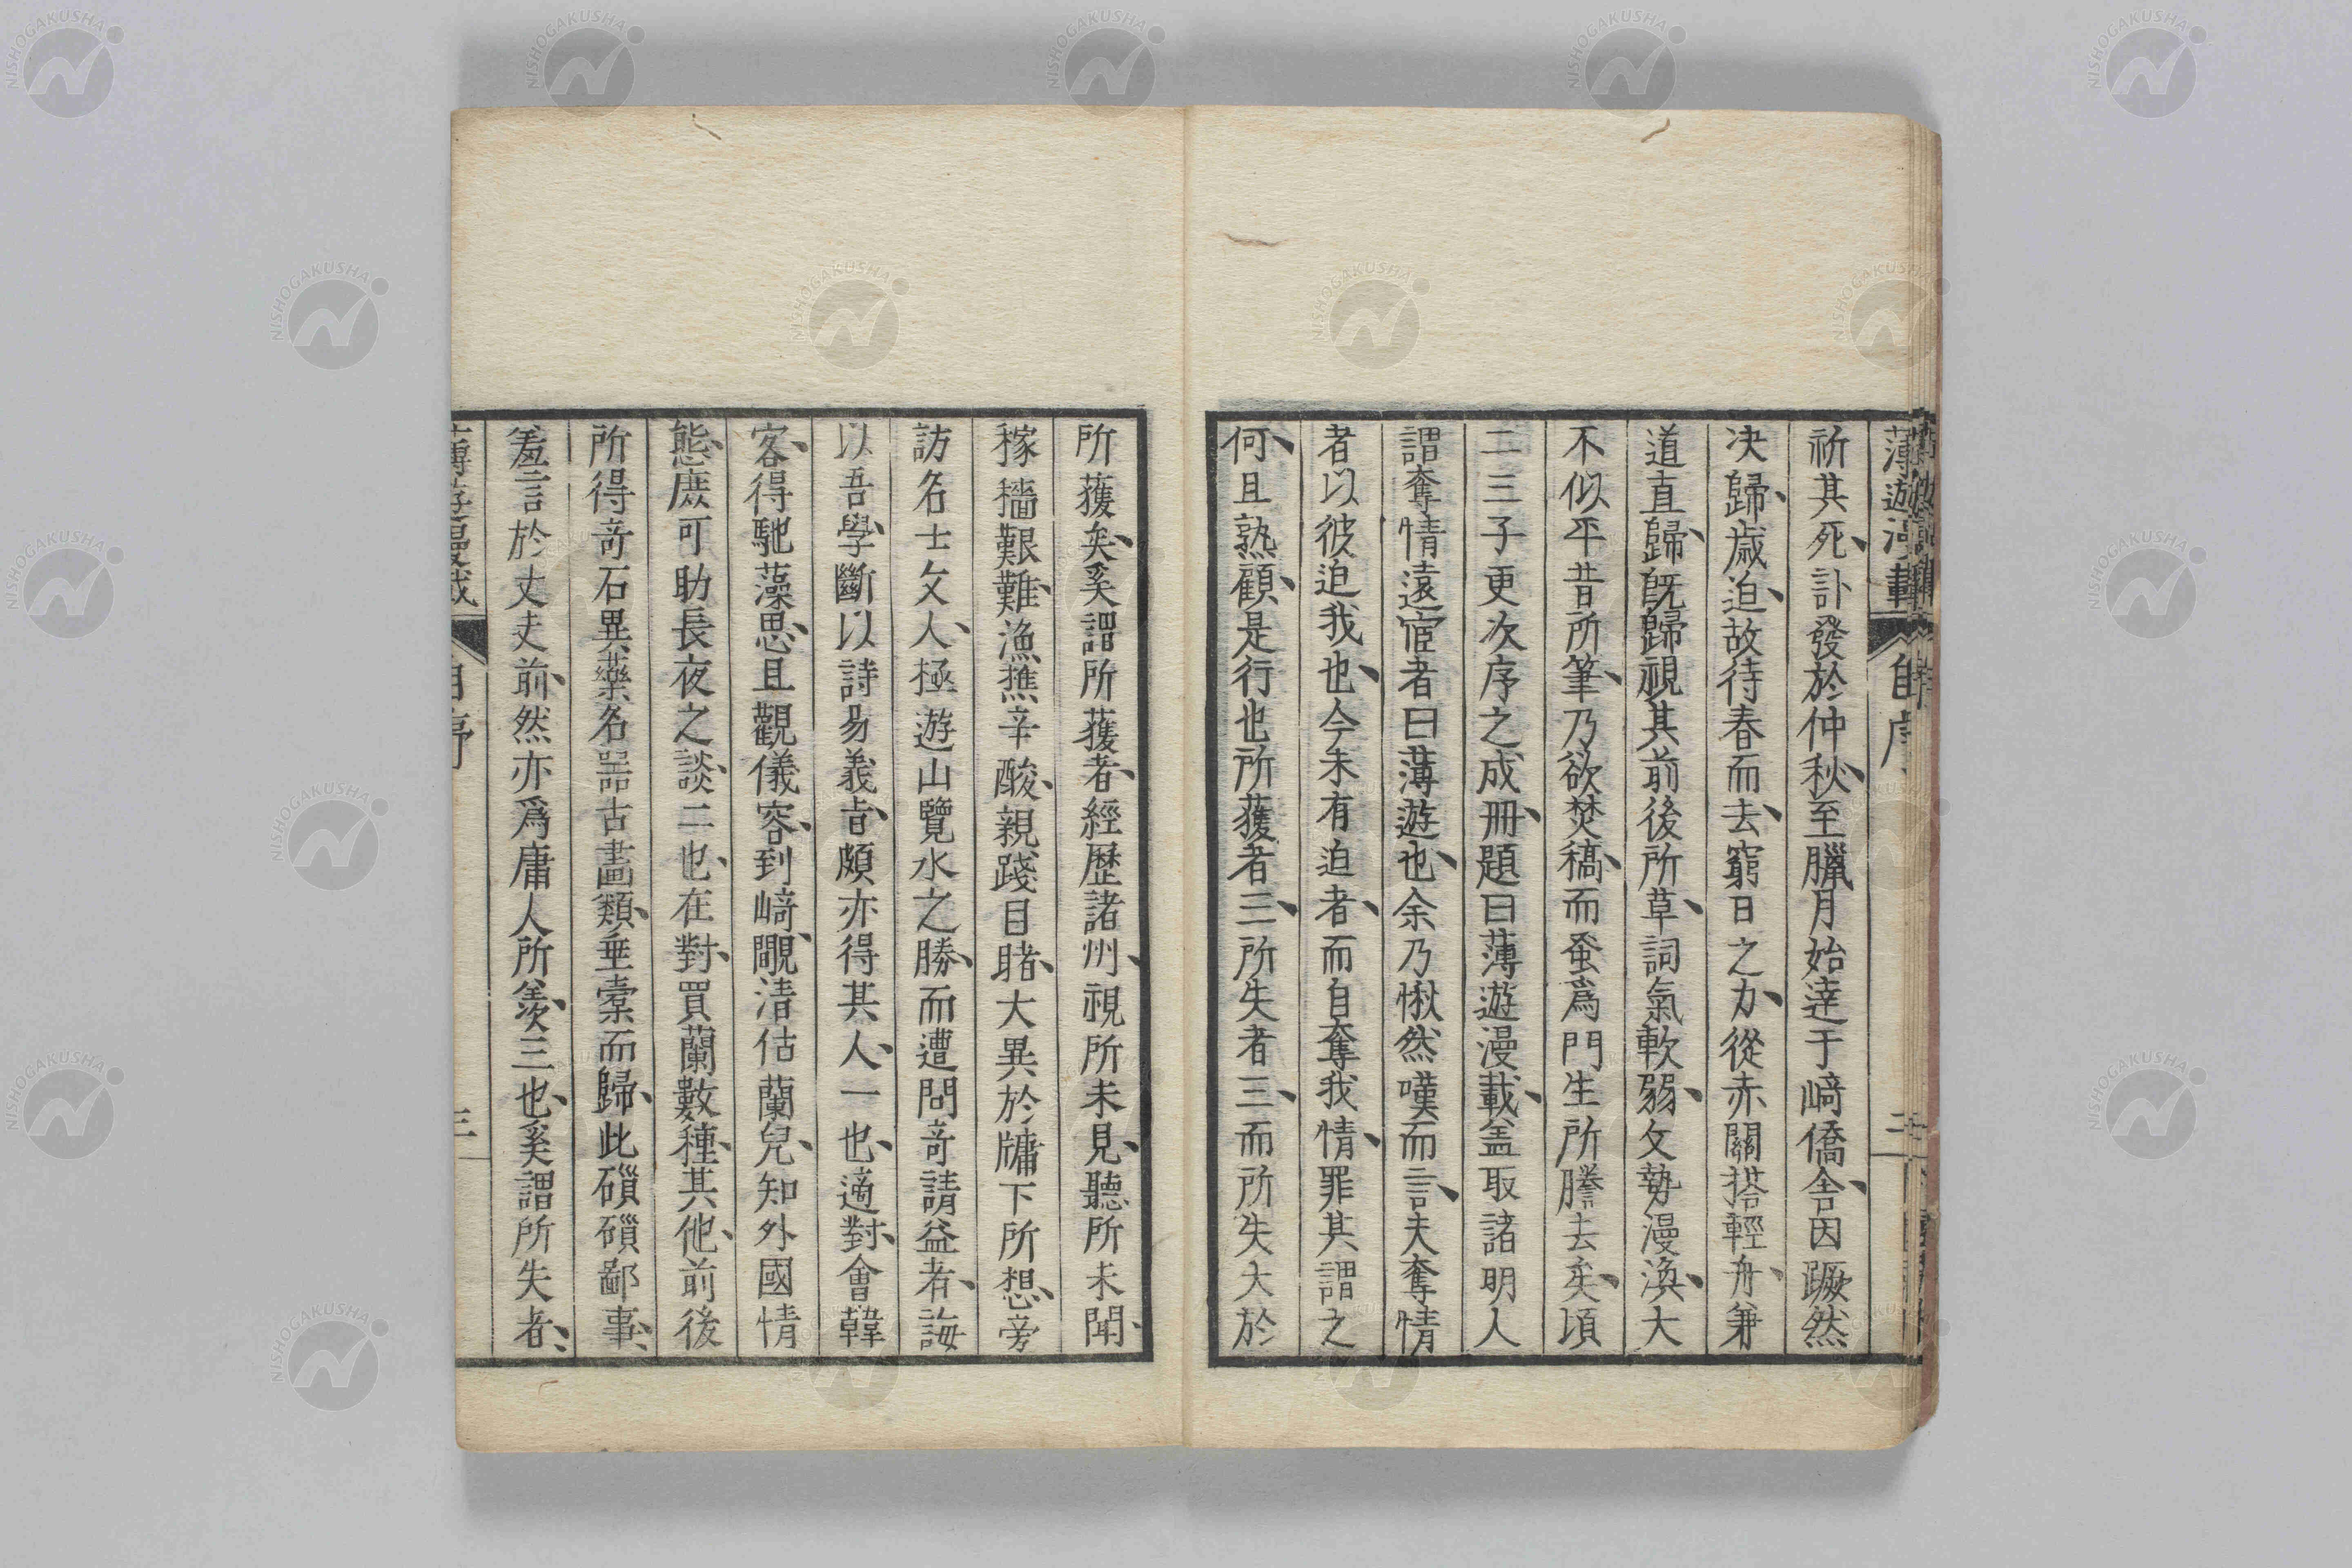 薄遊漫載 自序
祈其死、訃發於仲秋、至臘月始達于﨑僑舎、因蹶然
决歸、歳迫、故待春而去、窮日之力、從赤關搭輕舟、兼
道直歸、既歸視其前後所草、詞氣軟弱、文勢漫渙、大
不似平昔所筆、乃欲焚稿、而蚤爲門生所謄去矣、頃
二三子更次序之成冊、題曰薄遊漫載、盖取諸明人
謂奪情遠宦者曰薄遊也、余乃愀然嘆而言、夫奪情
者以彼迫我也、今未有迫者、而自奪我情、罪其謂之
何、且熟顧、是行也所獲者三、所失者三、而所失大於
所獲矣、奚謂所獲者、經歴諸州、視所未見、聽所未聞、
稼穡艱難、漁樵辛酸、親踐目睹、大異於牗下所想、旁
訪名士文人、極遊山覽水之勝、而遭問竒請益者、誨
以吾學、斷以詩易義、㫖、頗亦得其人、一也、適對會韓
客、得馳藻思、且觀儀容、到﨑、覵清估蘭兒、知外國情
態、庶可助長夜之談、二也、在對、買蘭數種、其他、前後
所得竒石異藥名噐古畫類、垂橐而歸、此𥕐𥕐鄙事、
羞言於丈夫前、然亦爲庸人所羨、三也、奚謂所失者、
薄遊漫載 自序 三